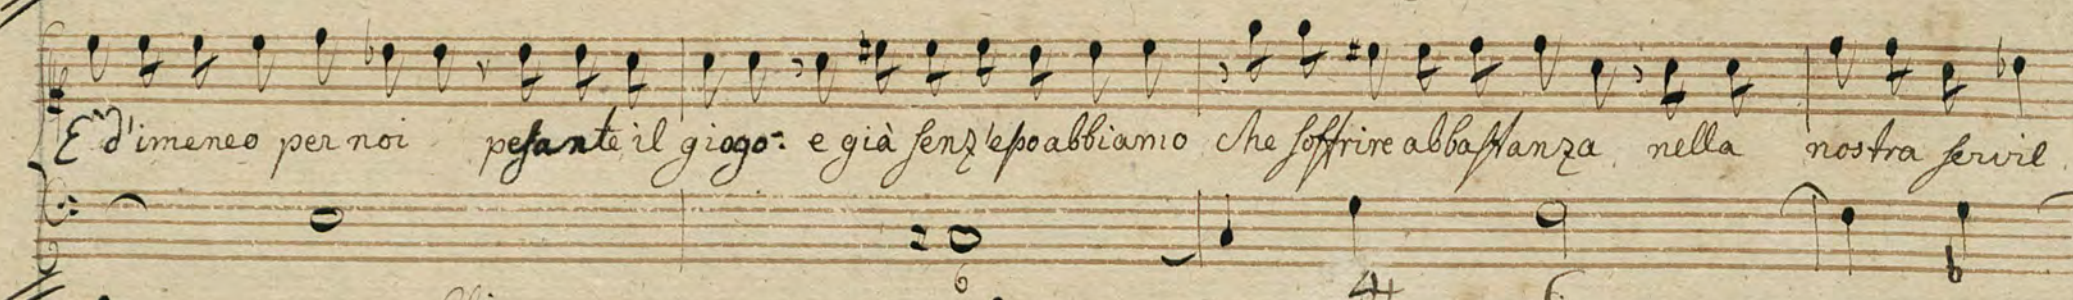 E d'imeneo per noi pesante il giogo: e già senz'esso abbiamo che soffrire abbastanza nella nostra servil
6
6